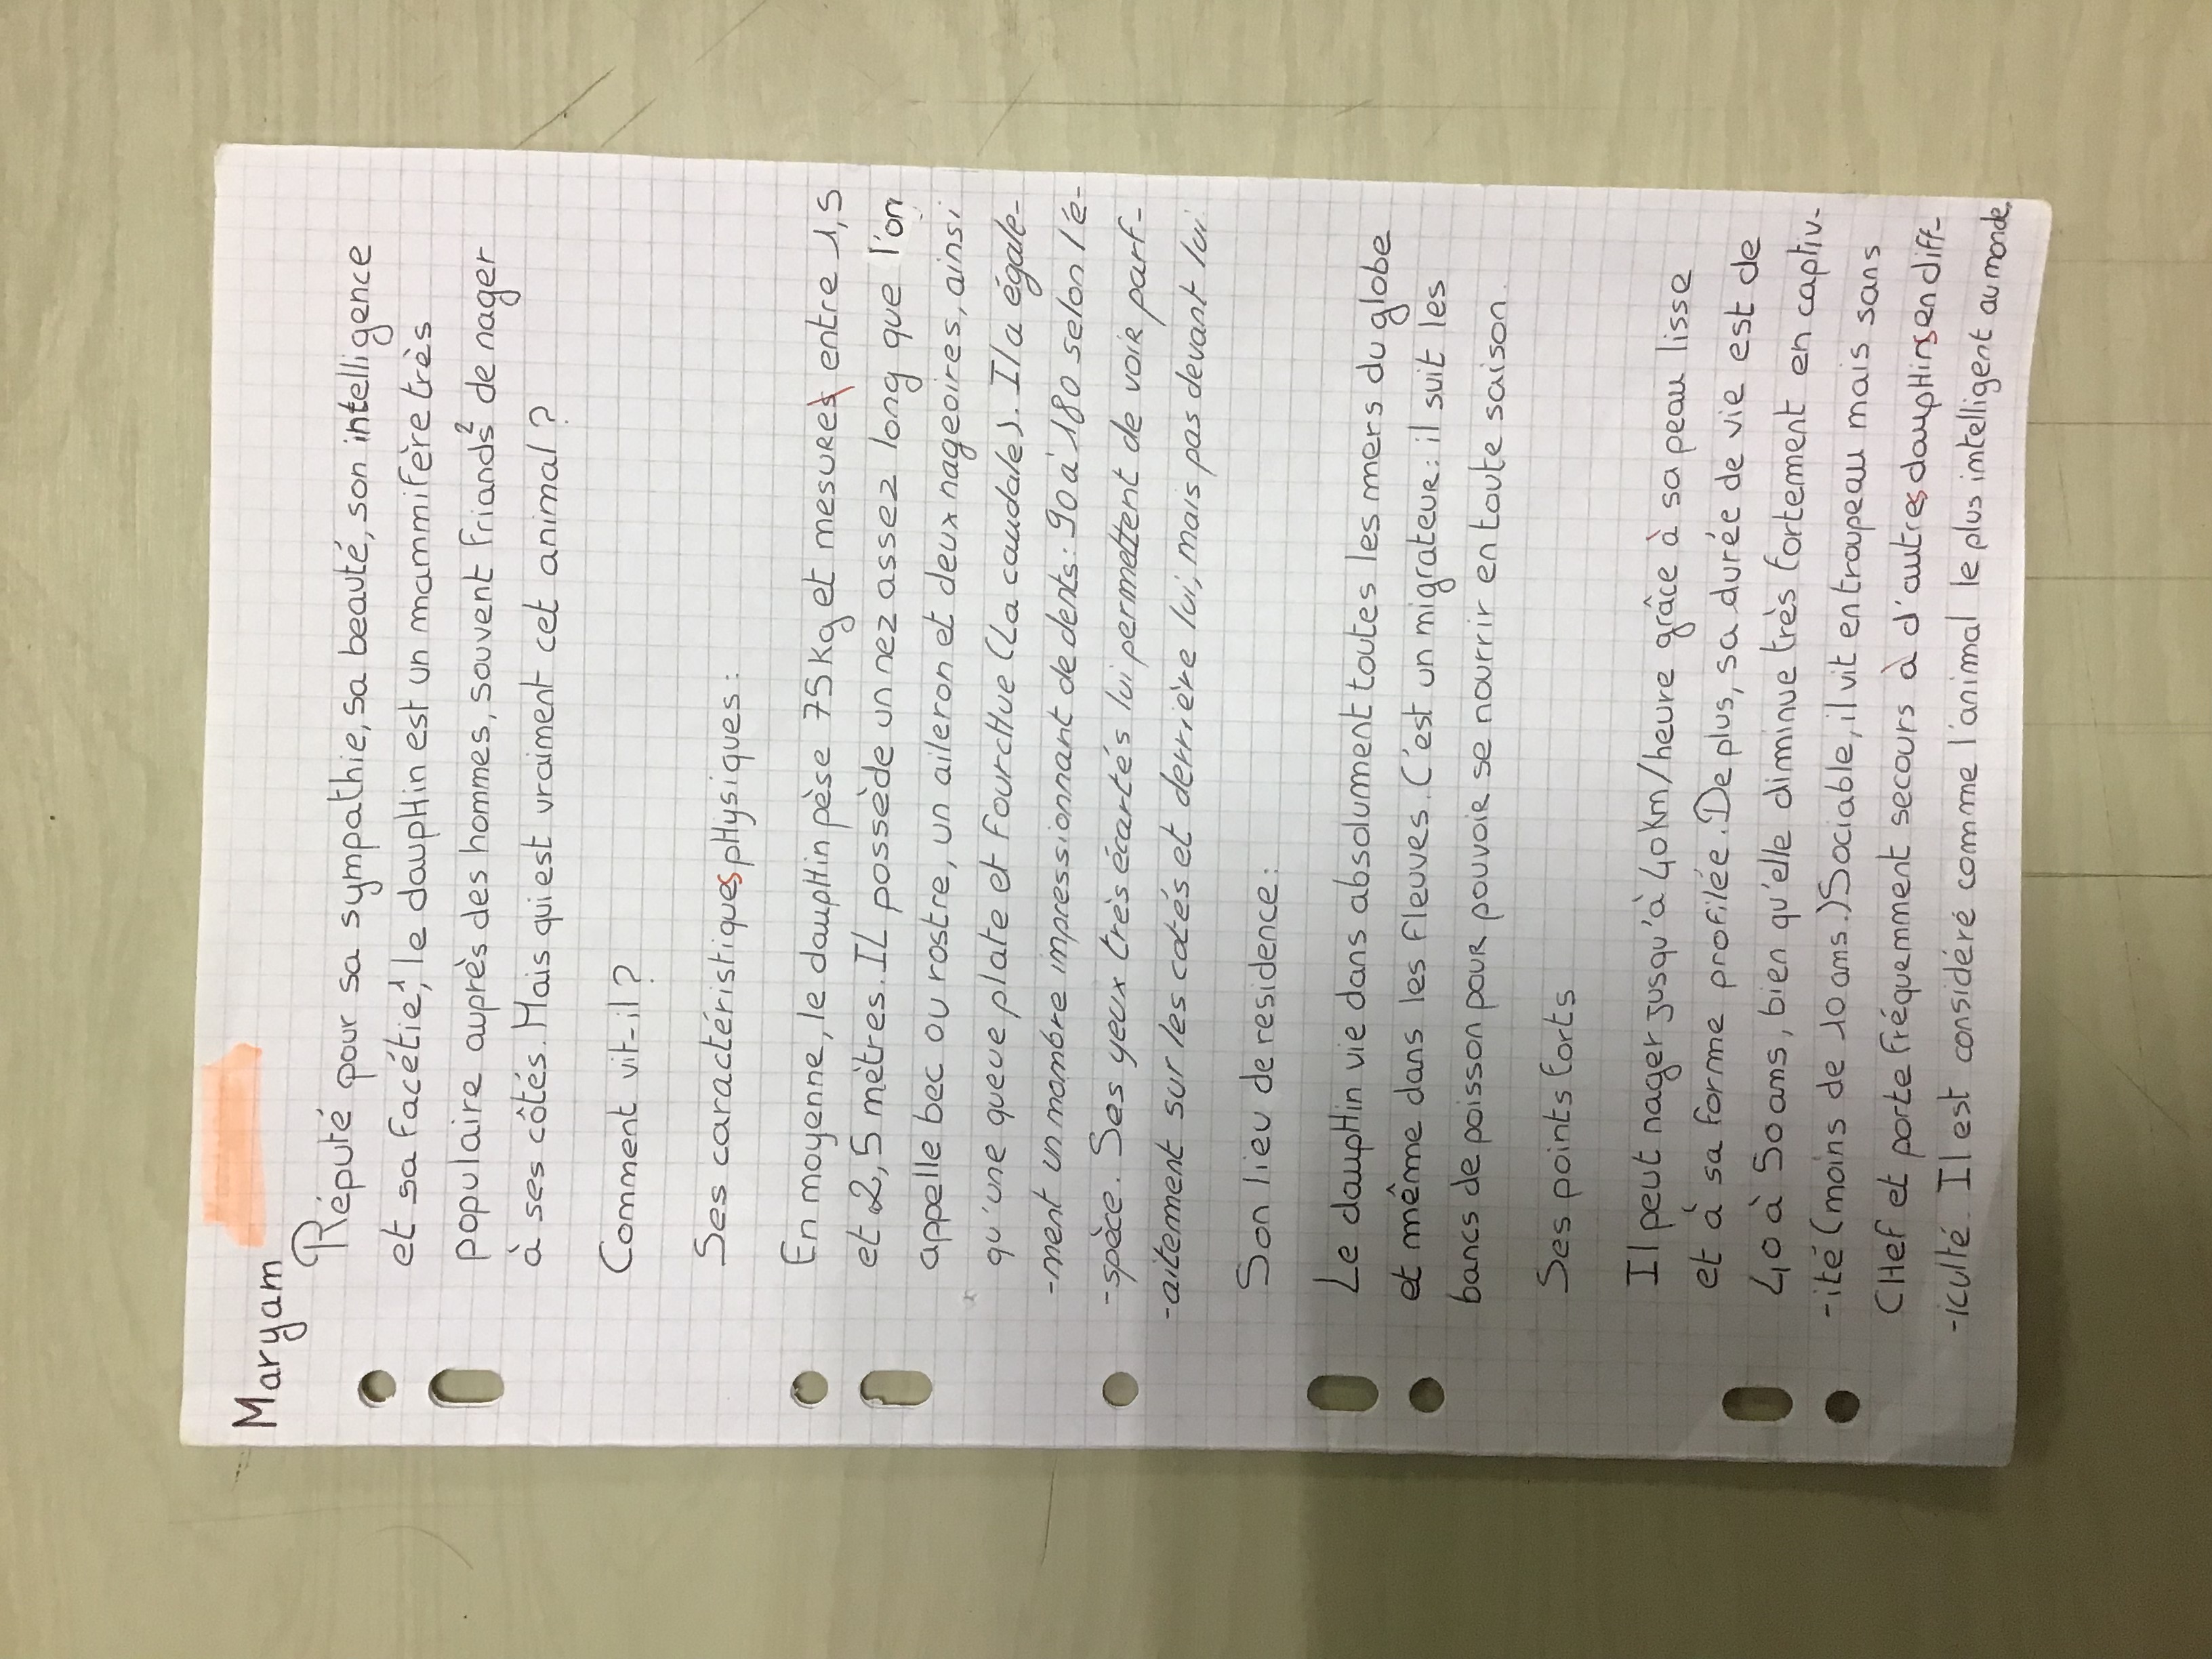 Maryam
Réputé pour sa sympathie, sa beauté, son intelligence
et sa facétie¹, le dauphin est un mammifère très
populaire auprès des hommes, souvent friands² de nager
à ses côtés. Mais qui est vraiment cet animal ?
Comment vit-il ?
Ses caractéristiques physiques :
En moyenne, le dauphin pèse 75 kg et mesures entre 1,5
et 2,5 mètres. IL possède un nez assez long que l'on
appelle bec ou rostre, un aileron et deux nageoires, ainsi
qu'une queue plate et fourchue (La caudale). Il a égale-
-ment un nombre impressionnant de dents : 90 à 180 selon l'é-
-spèce. Ses yeux très écartés lui permettent de voir parf-
-aitement sur les cotés et derrière lui, mais pas devant lui.
Son lieu de residence :
Le dauphin vie dans absolument toutes les mers du globe
et même dans les fleuves. C'est un migrateur : il suit les
bancs de poisson pour pouvoir se nourrir en toute saison.
Ses points forts
Il peut nager jusqu'à 40 km/heure grâce à sa peau lisse
et à sa forme profilée. De plus, sa durée de vie est de
40 à 50 ans, bien qu'elle diminue très fortement en captiv-
-ité (moins de 10 ans.) Sociable, il vit en troupeau mais sans
Chef et porte fréquemment secours à d'autres dauphins en diff-
-iculté. Il est considéré comme l'animal le plus intelligent au monde.